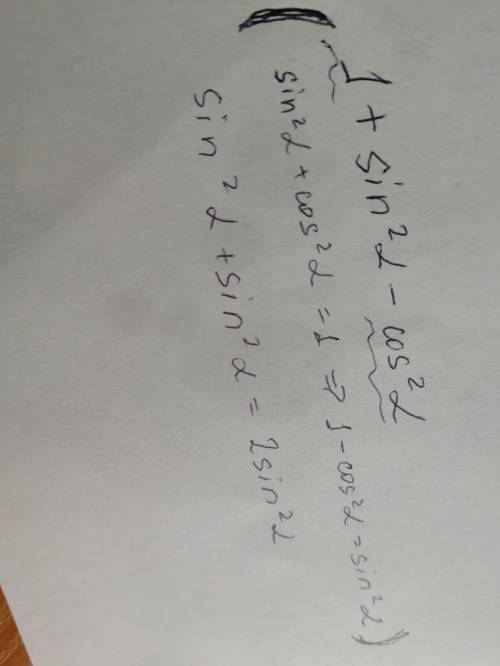 1 + sin²α - cos²α
sin²α + cos²α = 1 => 1 - cos²α = sin²α)
sin²α + sin²α = 2sin²α